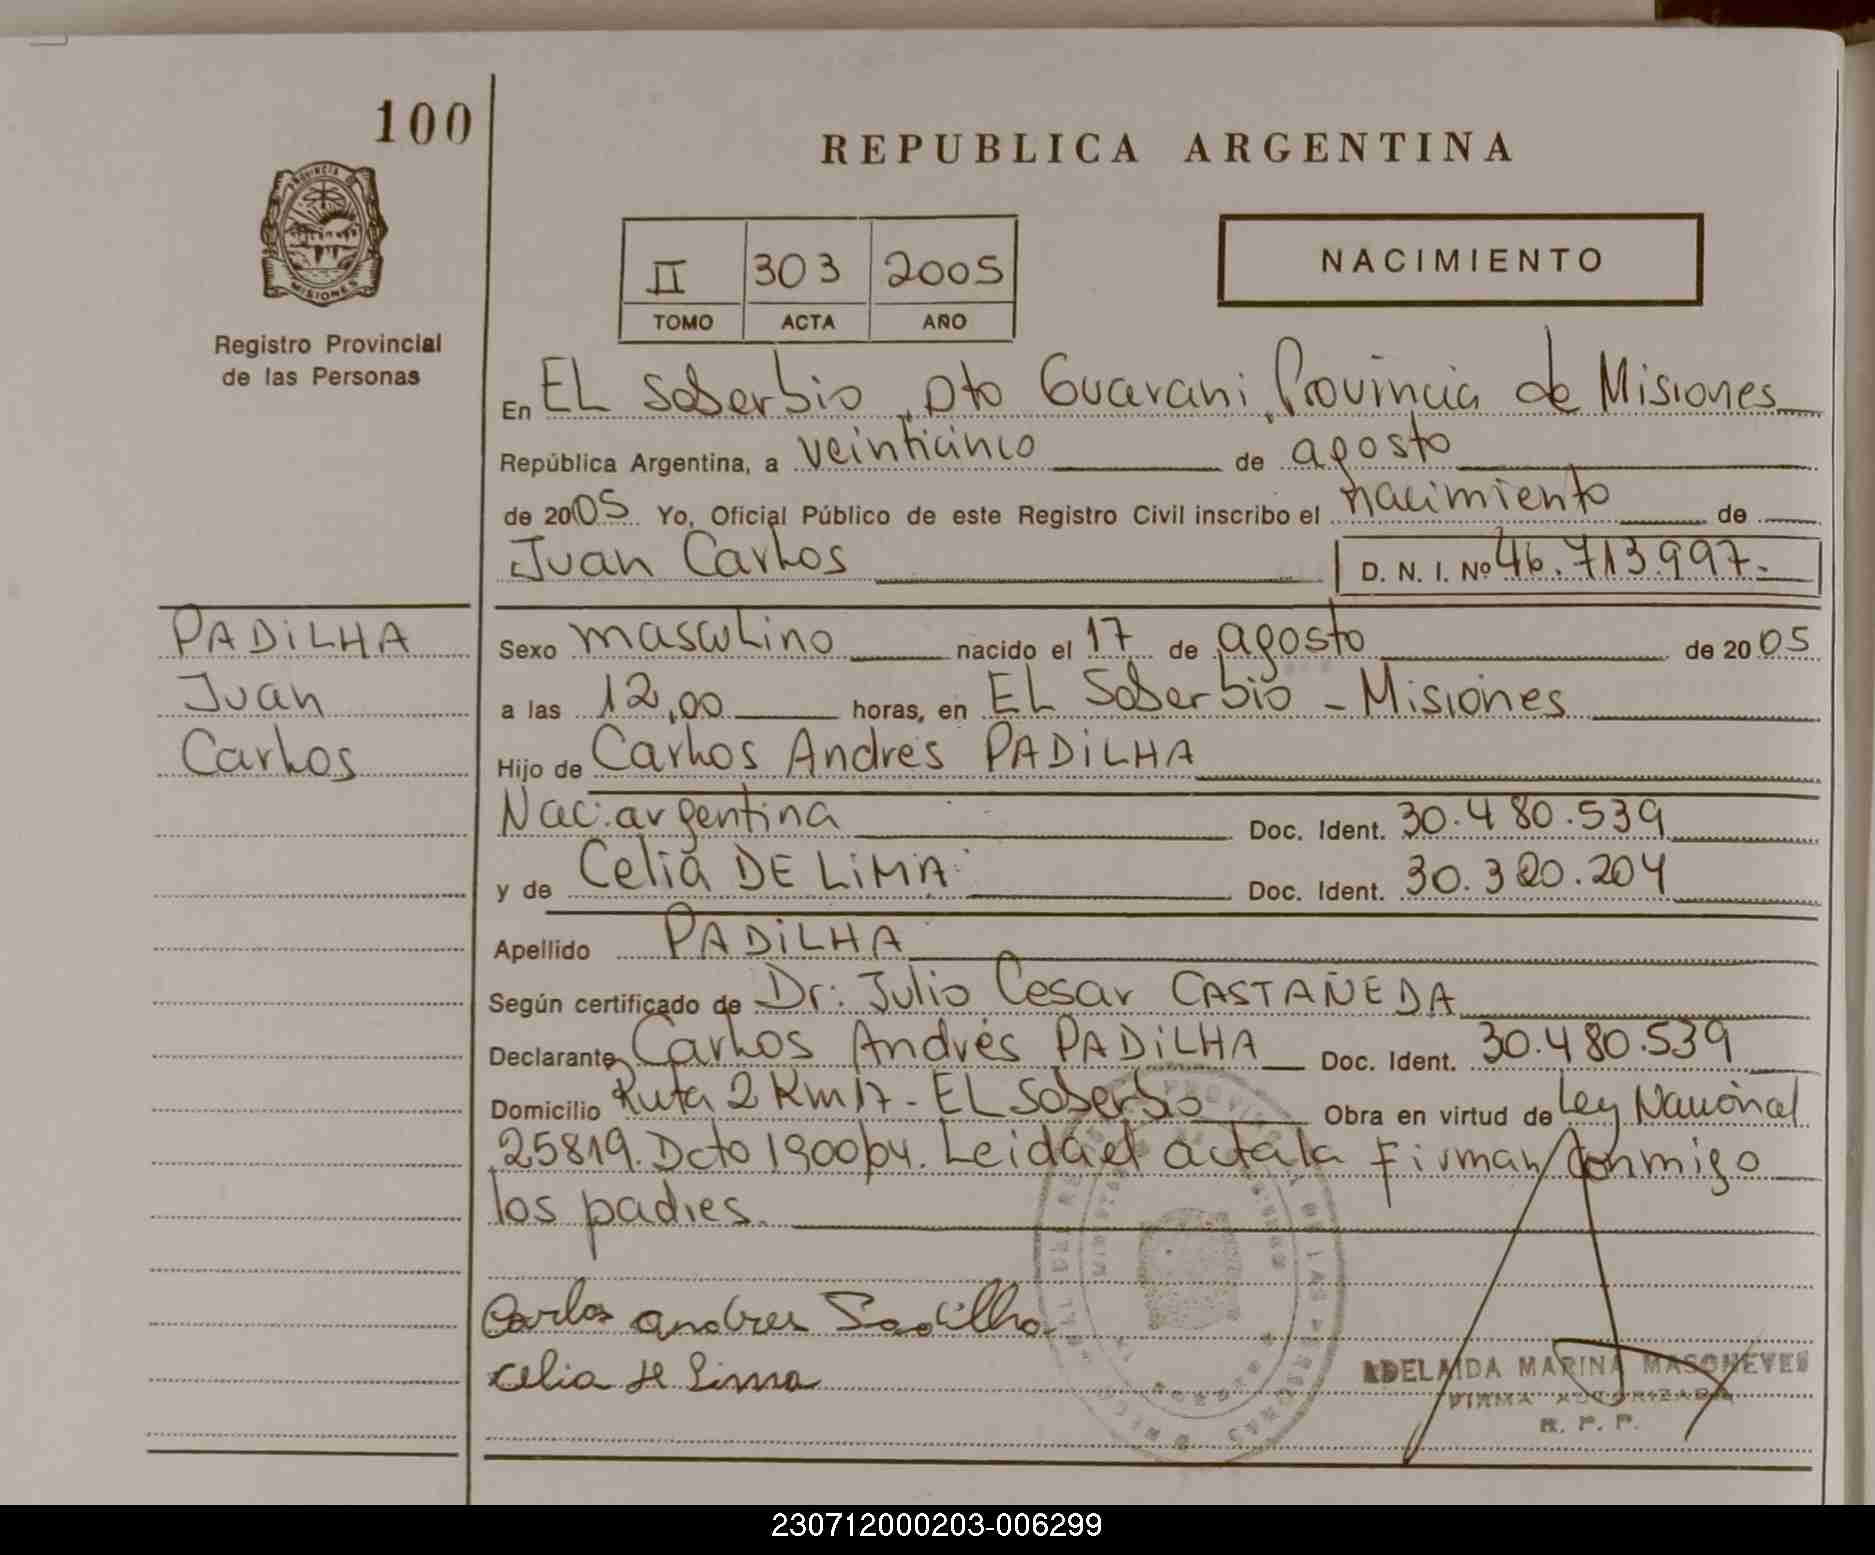 100
REPUBLICA ARGENTINA
PROVINCIA DE
MISIONES
Registro Provincial
de las Personas
II 303 2005
TOMO ACTA AÑO
NACIMIENTO
En EL Soberbio, Dto Guarani, Provincia de Misiones
República Argentina, a veinticinco de agosto
de 2005 Yo, Oficial Público de este Registro Civil inscribo el nacimiento de
Juan Carlos D. N. I. Nº 46.713.997.-
PADiLHA
Juan
Carlos
Sexo masculino nacido el 17 de agosto de 2005
a las 12,00 horas, en EL Soberbio - Misiones
Hijo de Carlos Andres PADiLHA
Nac. argentina Doc. Ident. 30.480.539
y de Celia DE LiMA Doc. Ident. 30.320.204
Apellido PADiLHA
Según certificado de Dr. Julio Cesar CASTAÑEDA
Declarante Carlos Andrés PADiLHA Doc. Ident. 30.480.539
Domicilio Ruta 2 Km 17 - EL Soberbio Obra en virtud de Ley Nacional
25819. Dcto 1900/04. Leida el acta la Firman conmigo
los padres.
Carlos andres Padilha
celia de Lima
ADELAIDA MARINA MASONEVES
FIRMA AUTORIZADA
R. P. P.
230712000203-006299